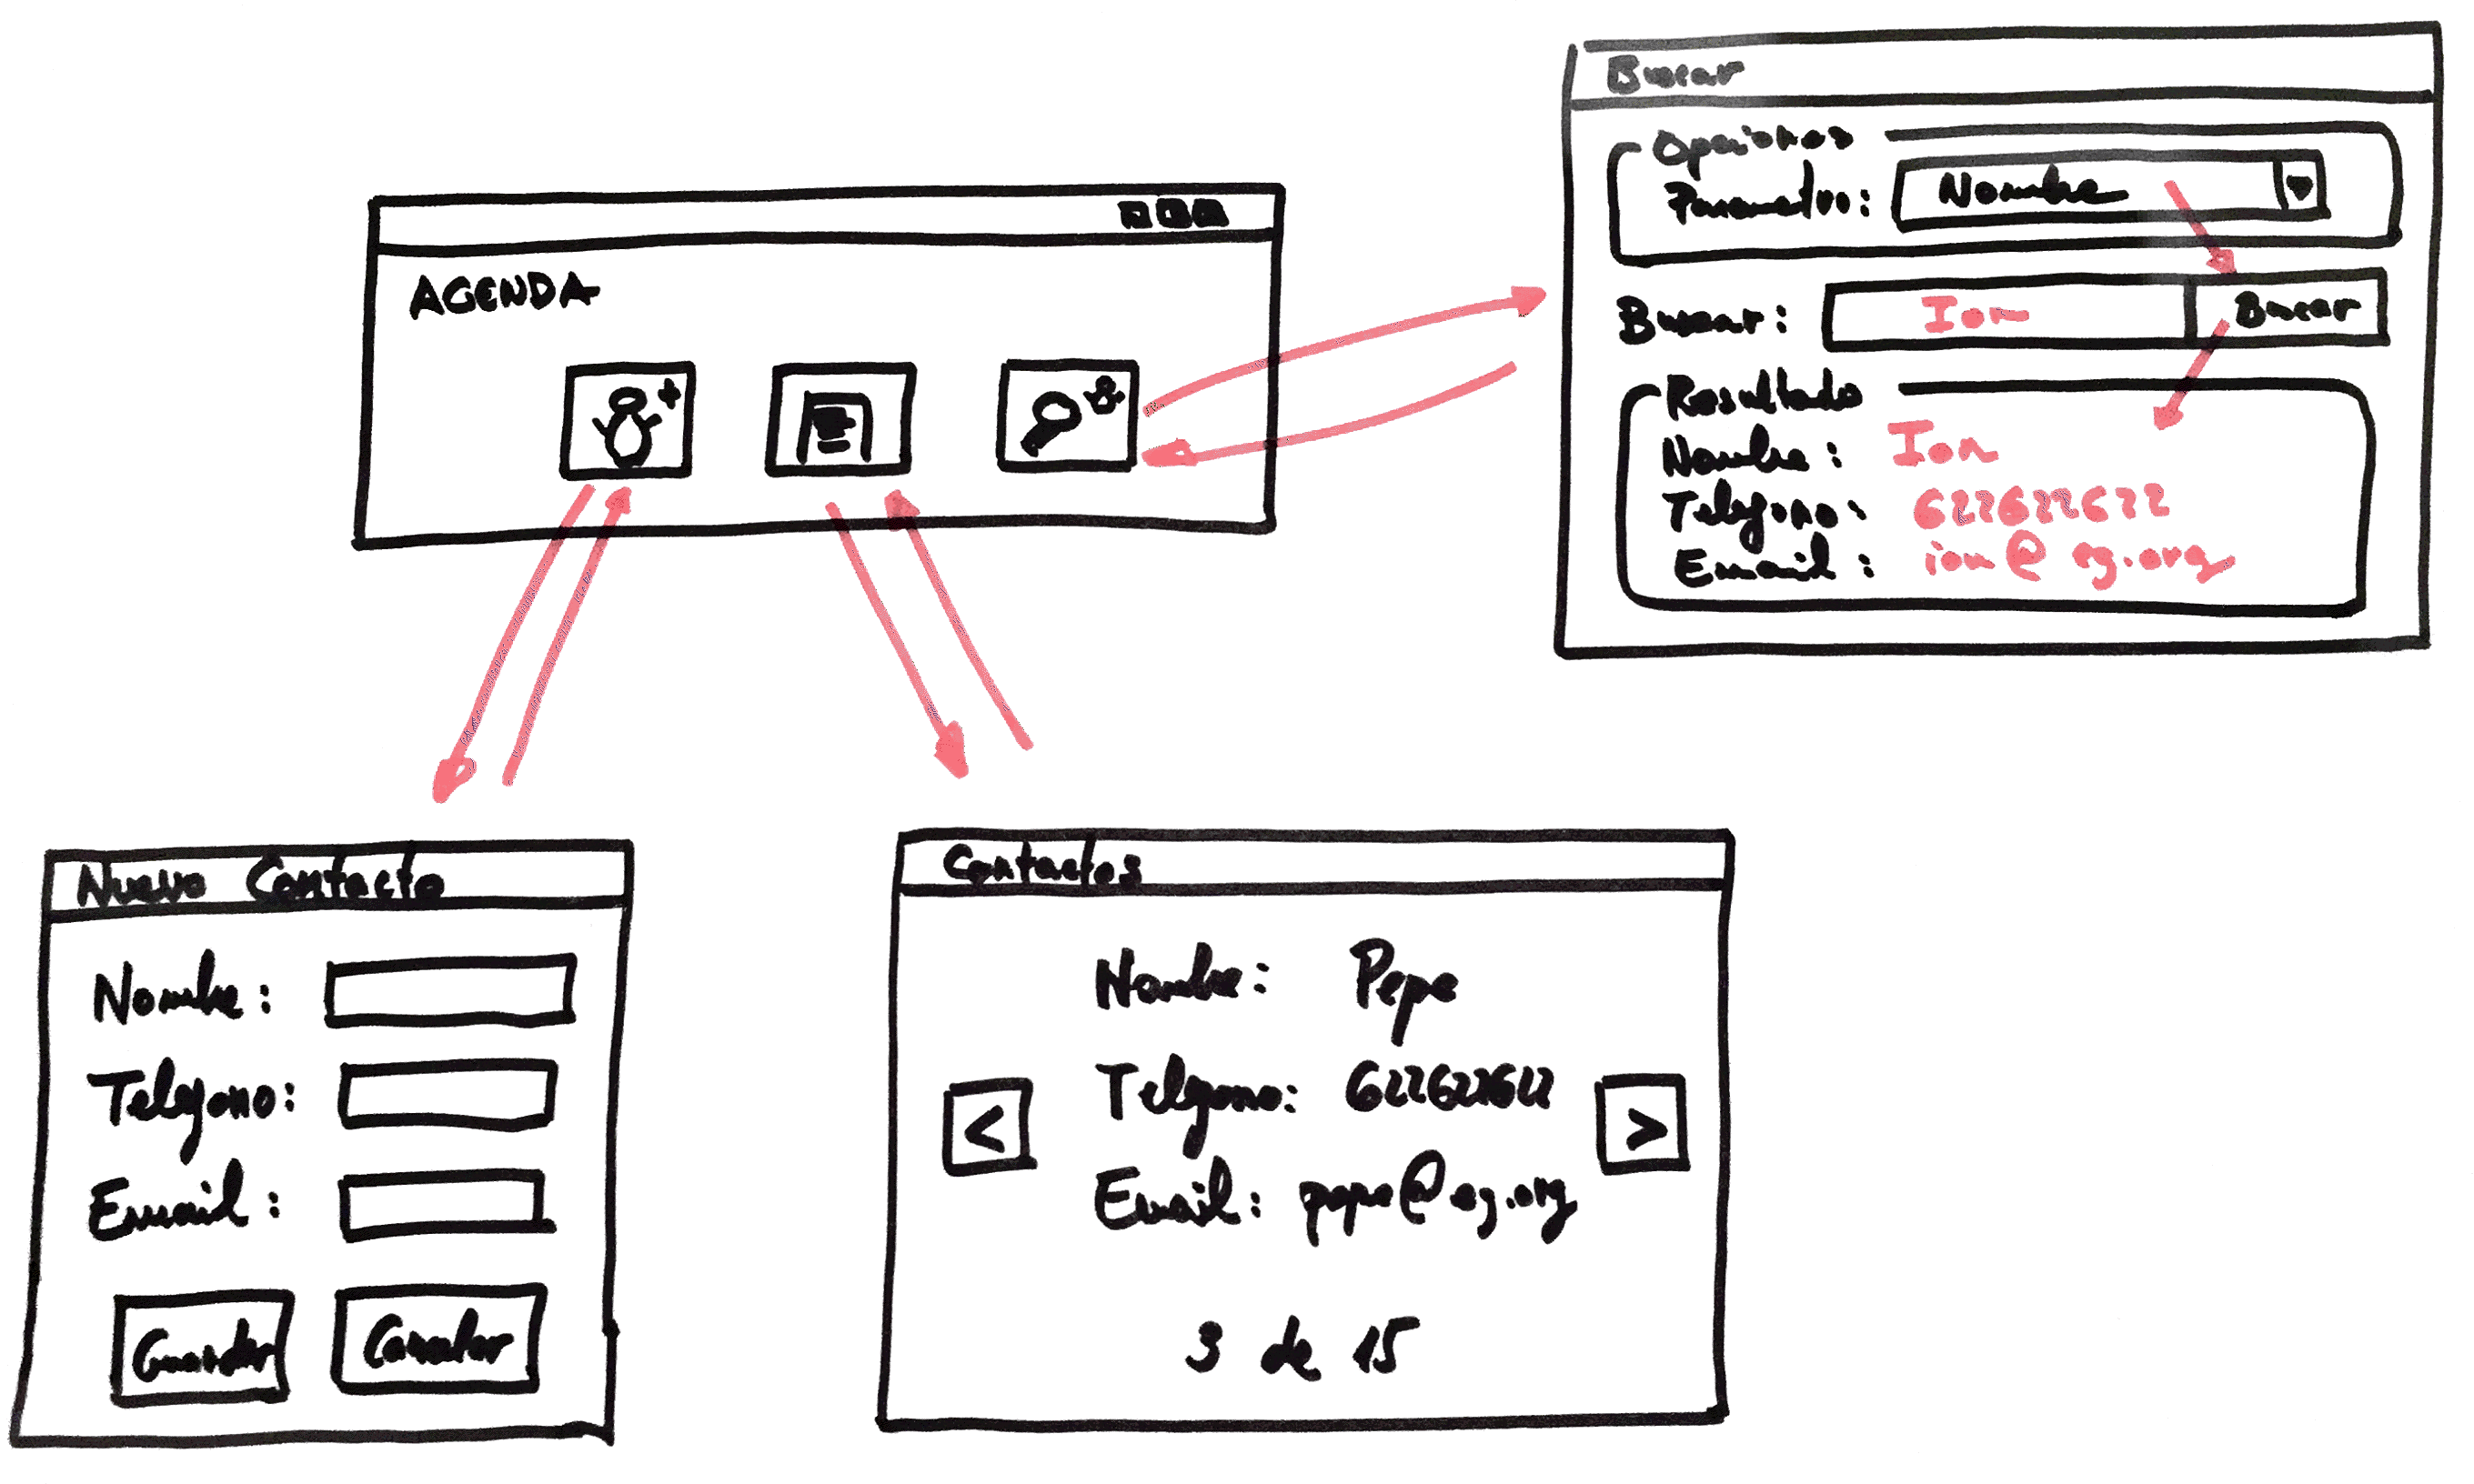 Buscar
Opciones
Parametro: Nombre
Buscar: Ion Buscar
Resultado
Nombre: Ion
Telefono: 622622622
Email: ion@eg.org
AGENDA
Nuevo Contacto
Nombre:
Telefono:
Email:
Guardar Cancelar
Contactos
Nombre: Pepe
Telefono: 622622622
Email: pepe@eg.org
< >
3 de 15